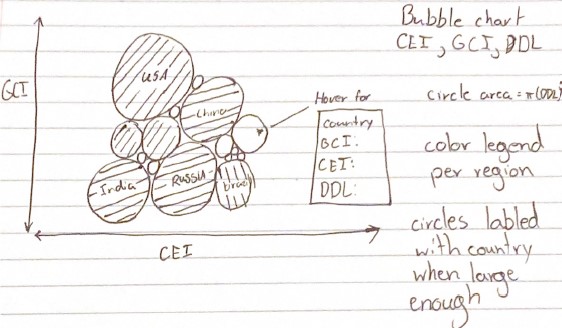 Bubble chart
CEI, GCI, DDL
GCI
USA
China
India
RUSSIA
Brazil
CEI
Hover for
country
GCI:
CEI:
DDL:
circle area = π(DDL)²
color legend
per region
circles labled
with country
when large
enough